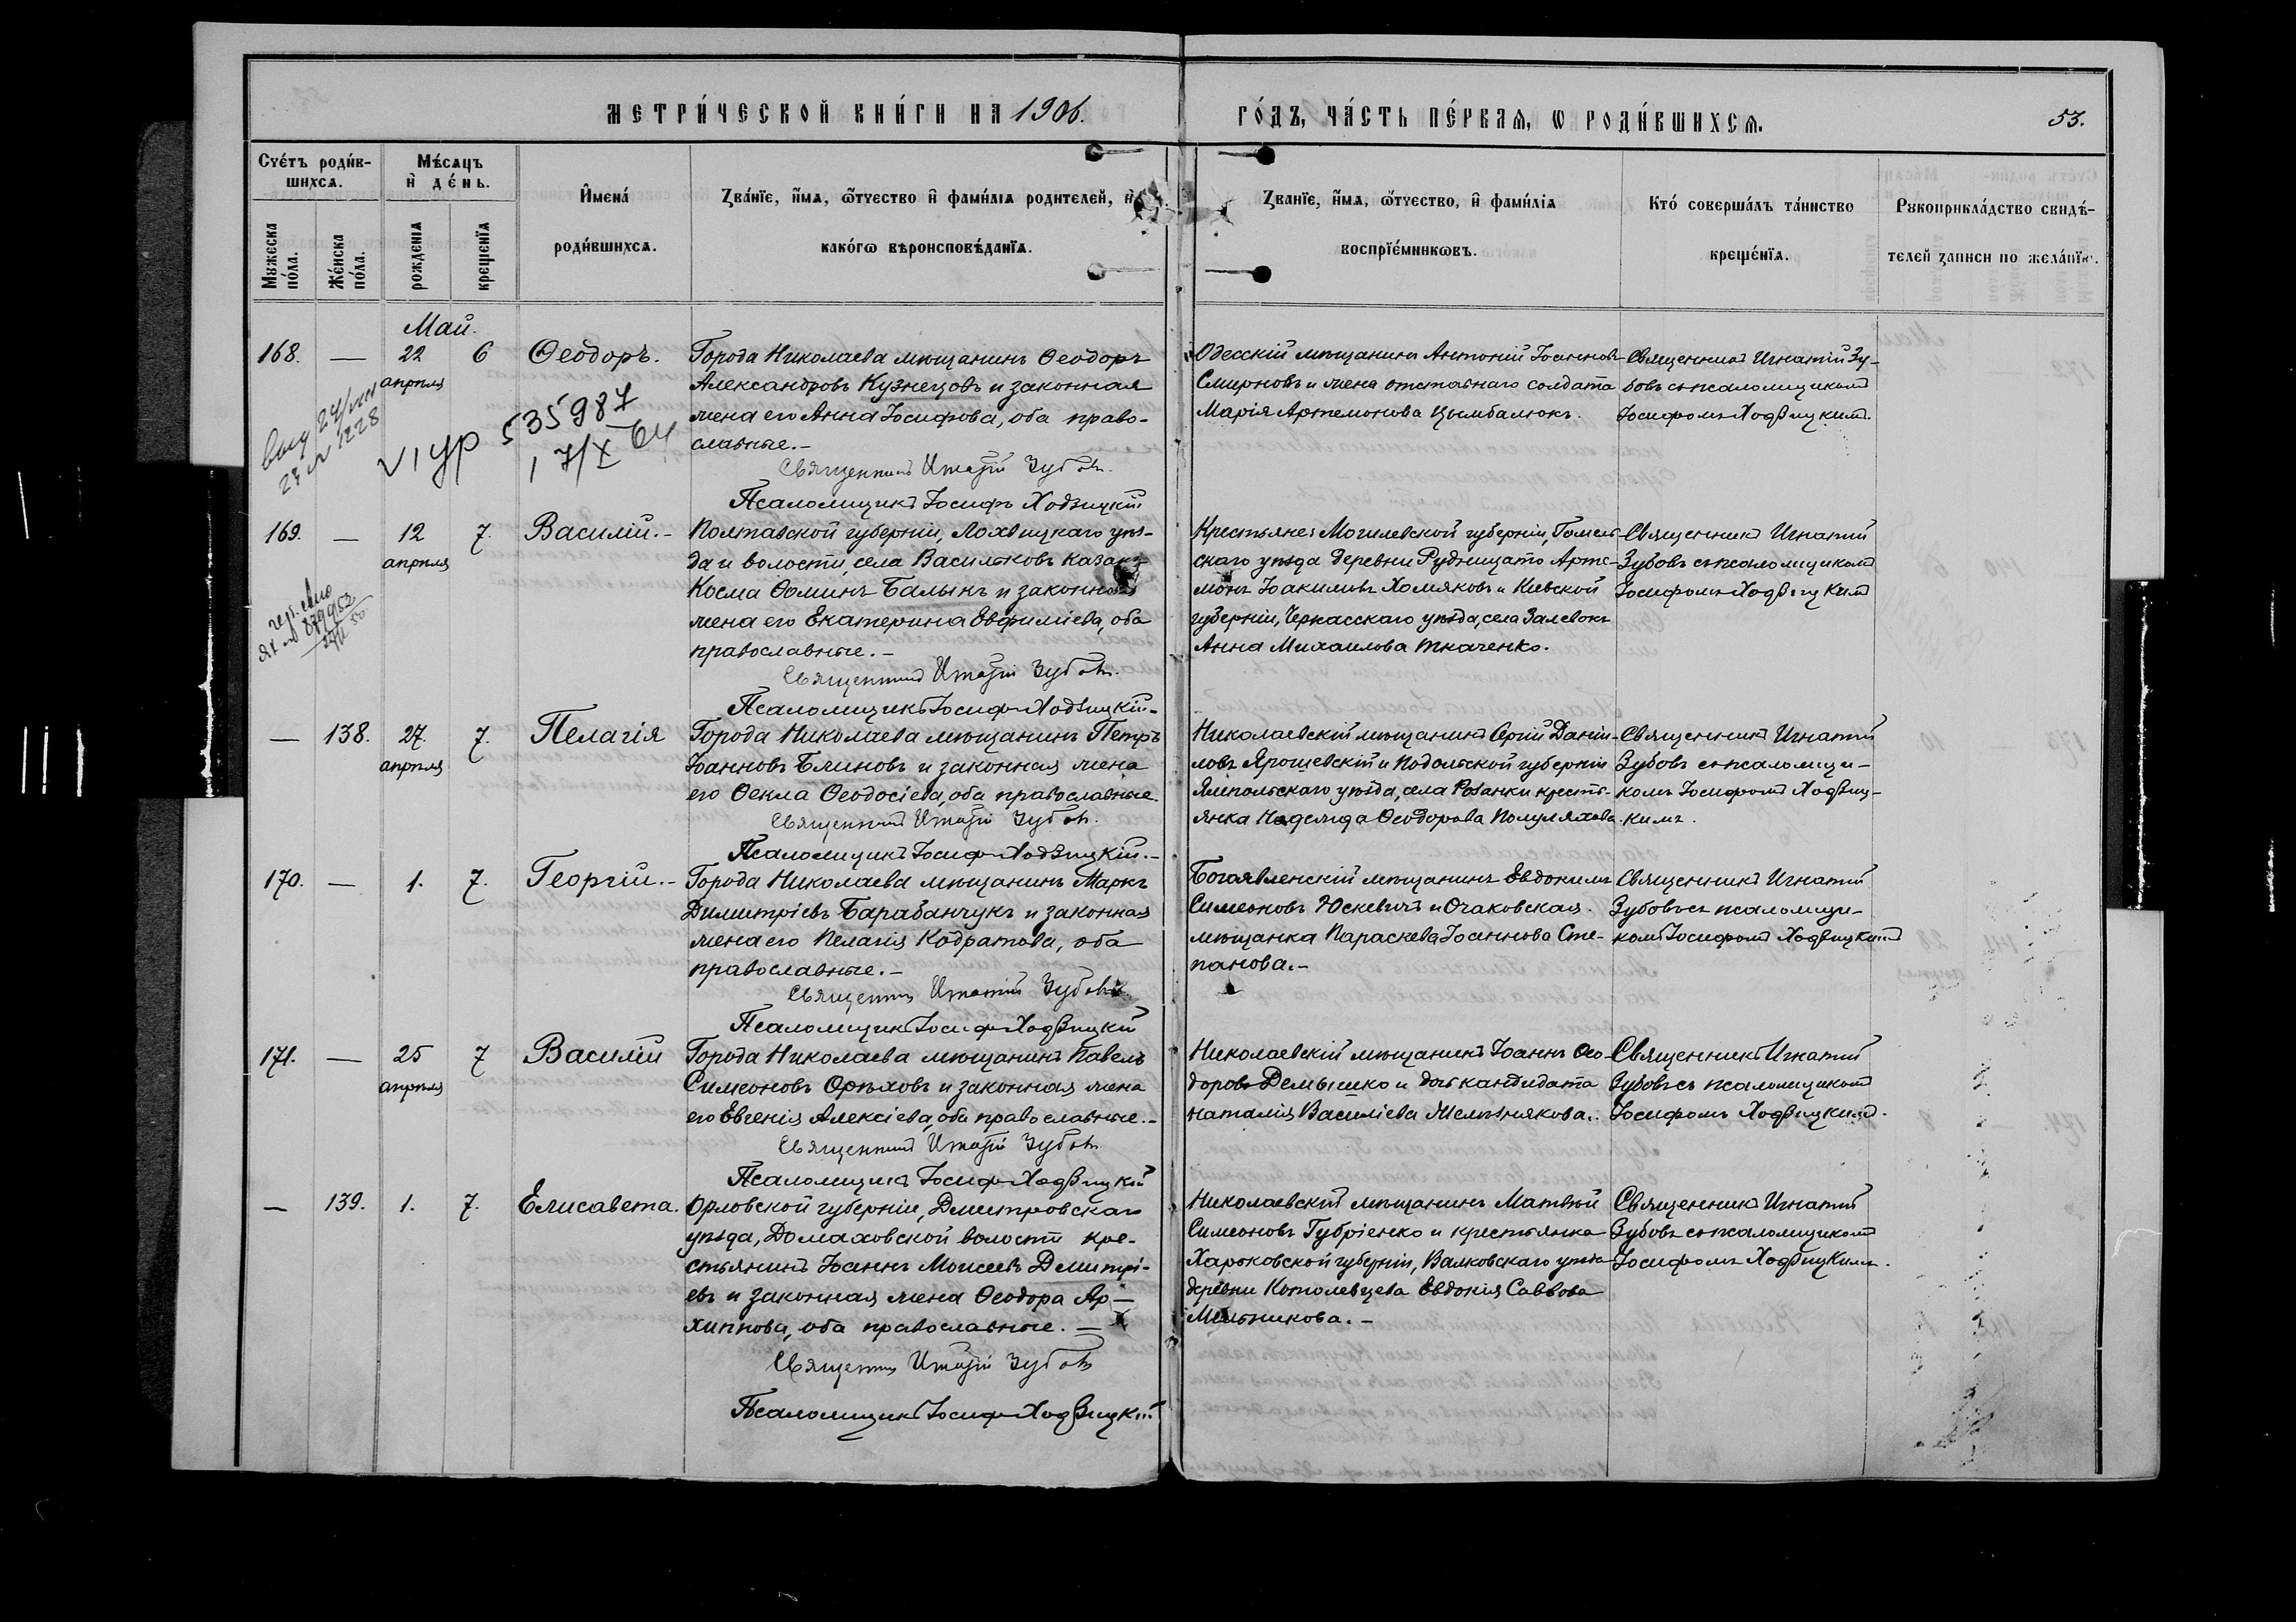 МЕТРИ́ЧЕСКОЙ КНИ́ГИ НА 1906.
ГО́ДЪ, ЧА́СТЬ ПЕ́РВАѦ, Ѡ РОДИ́ВШИХСѦ.
53.
Сче́тъ роди́в-
шихсѧ.
Мꙋжеска по́ла.
Же́нска по́ла.
Мѣ́сѧцъ
и҆ де́нь.
рожденїѧ
крещенїѧ
И҆мена́
роди́вшихсѧ.
Зва́нїе, и҆́мѧ, ѻ҆́тчество и҆ фами́лїѧ родителей, и҆
како́гѡ вѣроисповѣ́данїѧ.
Званїе, и҆́мѧ, ѻ҆́тчество, и҆ фами́лїѧ
воспрїе́мникѡвъ.
Кто́ соверша́лъ та́инство
креще́нїѧ.
Рꙋкоприкла́дство свидѣ́-
телей записи по жела́нїю.
Май.
168.
—
22
апрѣля
6
Ѳеодоръ.
Города Николаева мѣщанинъ Ѳеодоръ
Александровъ Кузнецовъ и законная
жена его Анна Іосифова, оба право-
славные.-
Священникъ Игнатій Зубовъ.
Псаломщикъ Іосифъ Ходзицкій
Одесскій мѣщанинъ Антоній Іоанновъ
Смирновъ и жена отставнаго солдата
Марія Артемонова Цымбалюкъ.
Священникъ Игнатій Зу-
бовъ съ псаломщикомъ
Іосифомъ Ходзицкимъ.
535987
17/X 64
169.
—
12
апрѣля
7.
Василій.-
Полтавской губерніи, Лохвицкаго уѣз-
да и волости, села Васильковъ казакъ
Косма Ѳоминъ Балынъ и законная
жена его Екатерина Евфиміева, оба
православные.-
Священникъ Игнатій Зубовъ.
Псаломщикъ Іосифъ Ходзицкій-
Крестьяне: Могилевской губерніи, Гомель-
скаго уѣзда деревни Рудницато Арте-
монъ Іоакимовъ Хомяковъ и Кіевской
губерніи, Черкасскаго уѣзда, села Залевокъ
Анна Михаилова Ткаченко.
Священникъ Игнатій
Зубовъ съ псаломщикомъ
Іосифомъ Ходзицкимъ
—
138.
27.
апрѣля
7.
Пелагія
Города Николаева мѣщанинъ Петръ
Іоанновъ Блиновъ и законная жена
его Ѳекла Ѳеодосіева, оба православные.
Священникъ Игнатій Зубовъ.
Псаломщикъ Іосифъ Ходзицкій.-
Николаевскій мѣщанинъ Сергій Даніи-
ловъ Ярошевскій и Подольской губерніи
Ямпольскаго уѣзда, села крестъ-
янка Надежда Ѳеодорова Полуляхова.
Священникъ Игнатій
Зубовъ съ псаломщи-
комъ Іосифомъ Ходзиц-
кимъ.
170.
—
1.
7.
Георгій.-
Города Николаева мѣщанинъ Маркъ
Димитріевъ Барабанчукъ и законная
жена его Пелагія Кодратова, оба
православные.-
Священникъ Игнатій Зубовъ.
Псаломщикъ Іосифъ Ходзицкій
Богоявленскій мѣщанинъ Евдокимъ
Симеоновъ Юскевичъ и Очаковская
мѣщанка Параскева Іоаннова Сте-
панова.-
Священникъ Игнатій
Зубовъ съ псаломщи-
комъ Іосифомъ Ходзицкимъ
171.
—
25
апрѣля
7
Василій
Города Николаева мѣщанинъ Павелъ
Симеоновъ Орѣховъ и законная жена
его Евгенія Алексіева, оба православные.-
Священникъ Игнатій Зубовъ
Псаломщикъ Іосифъ Ходзицкій
Николаевскій мѣщанинъ Іоаннъ Ѳео-
доровъ Демышко и дочь кандидата
Наталія Василіева Желѣзнякова.
Священникъ Игнатій
Зубовъ съ псаломщикомъ
Іосифомъ Ходзицкимъ.
—
139.
1.
7.
Елисавета.
Орловской губерніи, Дмитровскаго
уѣзда, Домаховской волости кре-
стьянинъ Іоаннъ Моисеевъ Дмитрі-
евъ и законная жена Ѳеодора Ар-
хиппова, оба православные.-
Священникъ Игнатій Зубовъ
Псаломщикъ Іосифъ Ходзицкій
Николаевскій мѣщанинъ Матвѣй
Симеоновъ Губріенко и крестьянка
Харьковской губерніи, Валковскаго уѣзда
деревни Евдокія Саввова
Мельникова.-
Священникъ Игнатій
Зубовъ съ псаломщикомъ
Іосифомъ Ходзицкимъ.